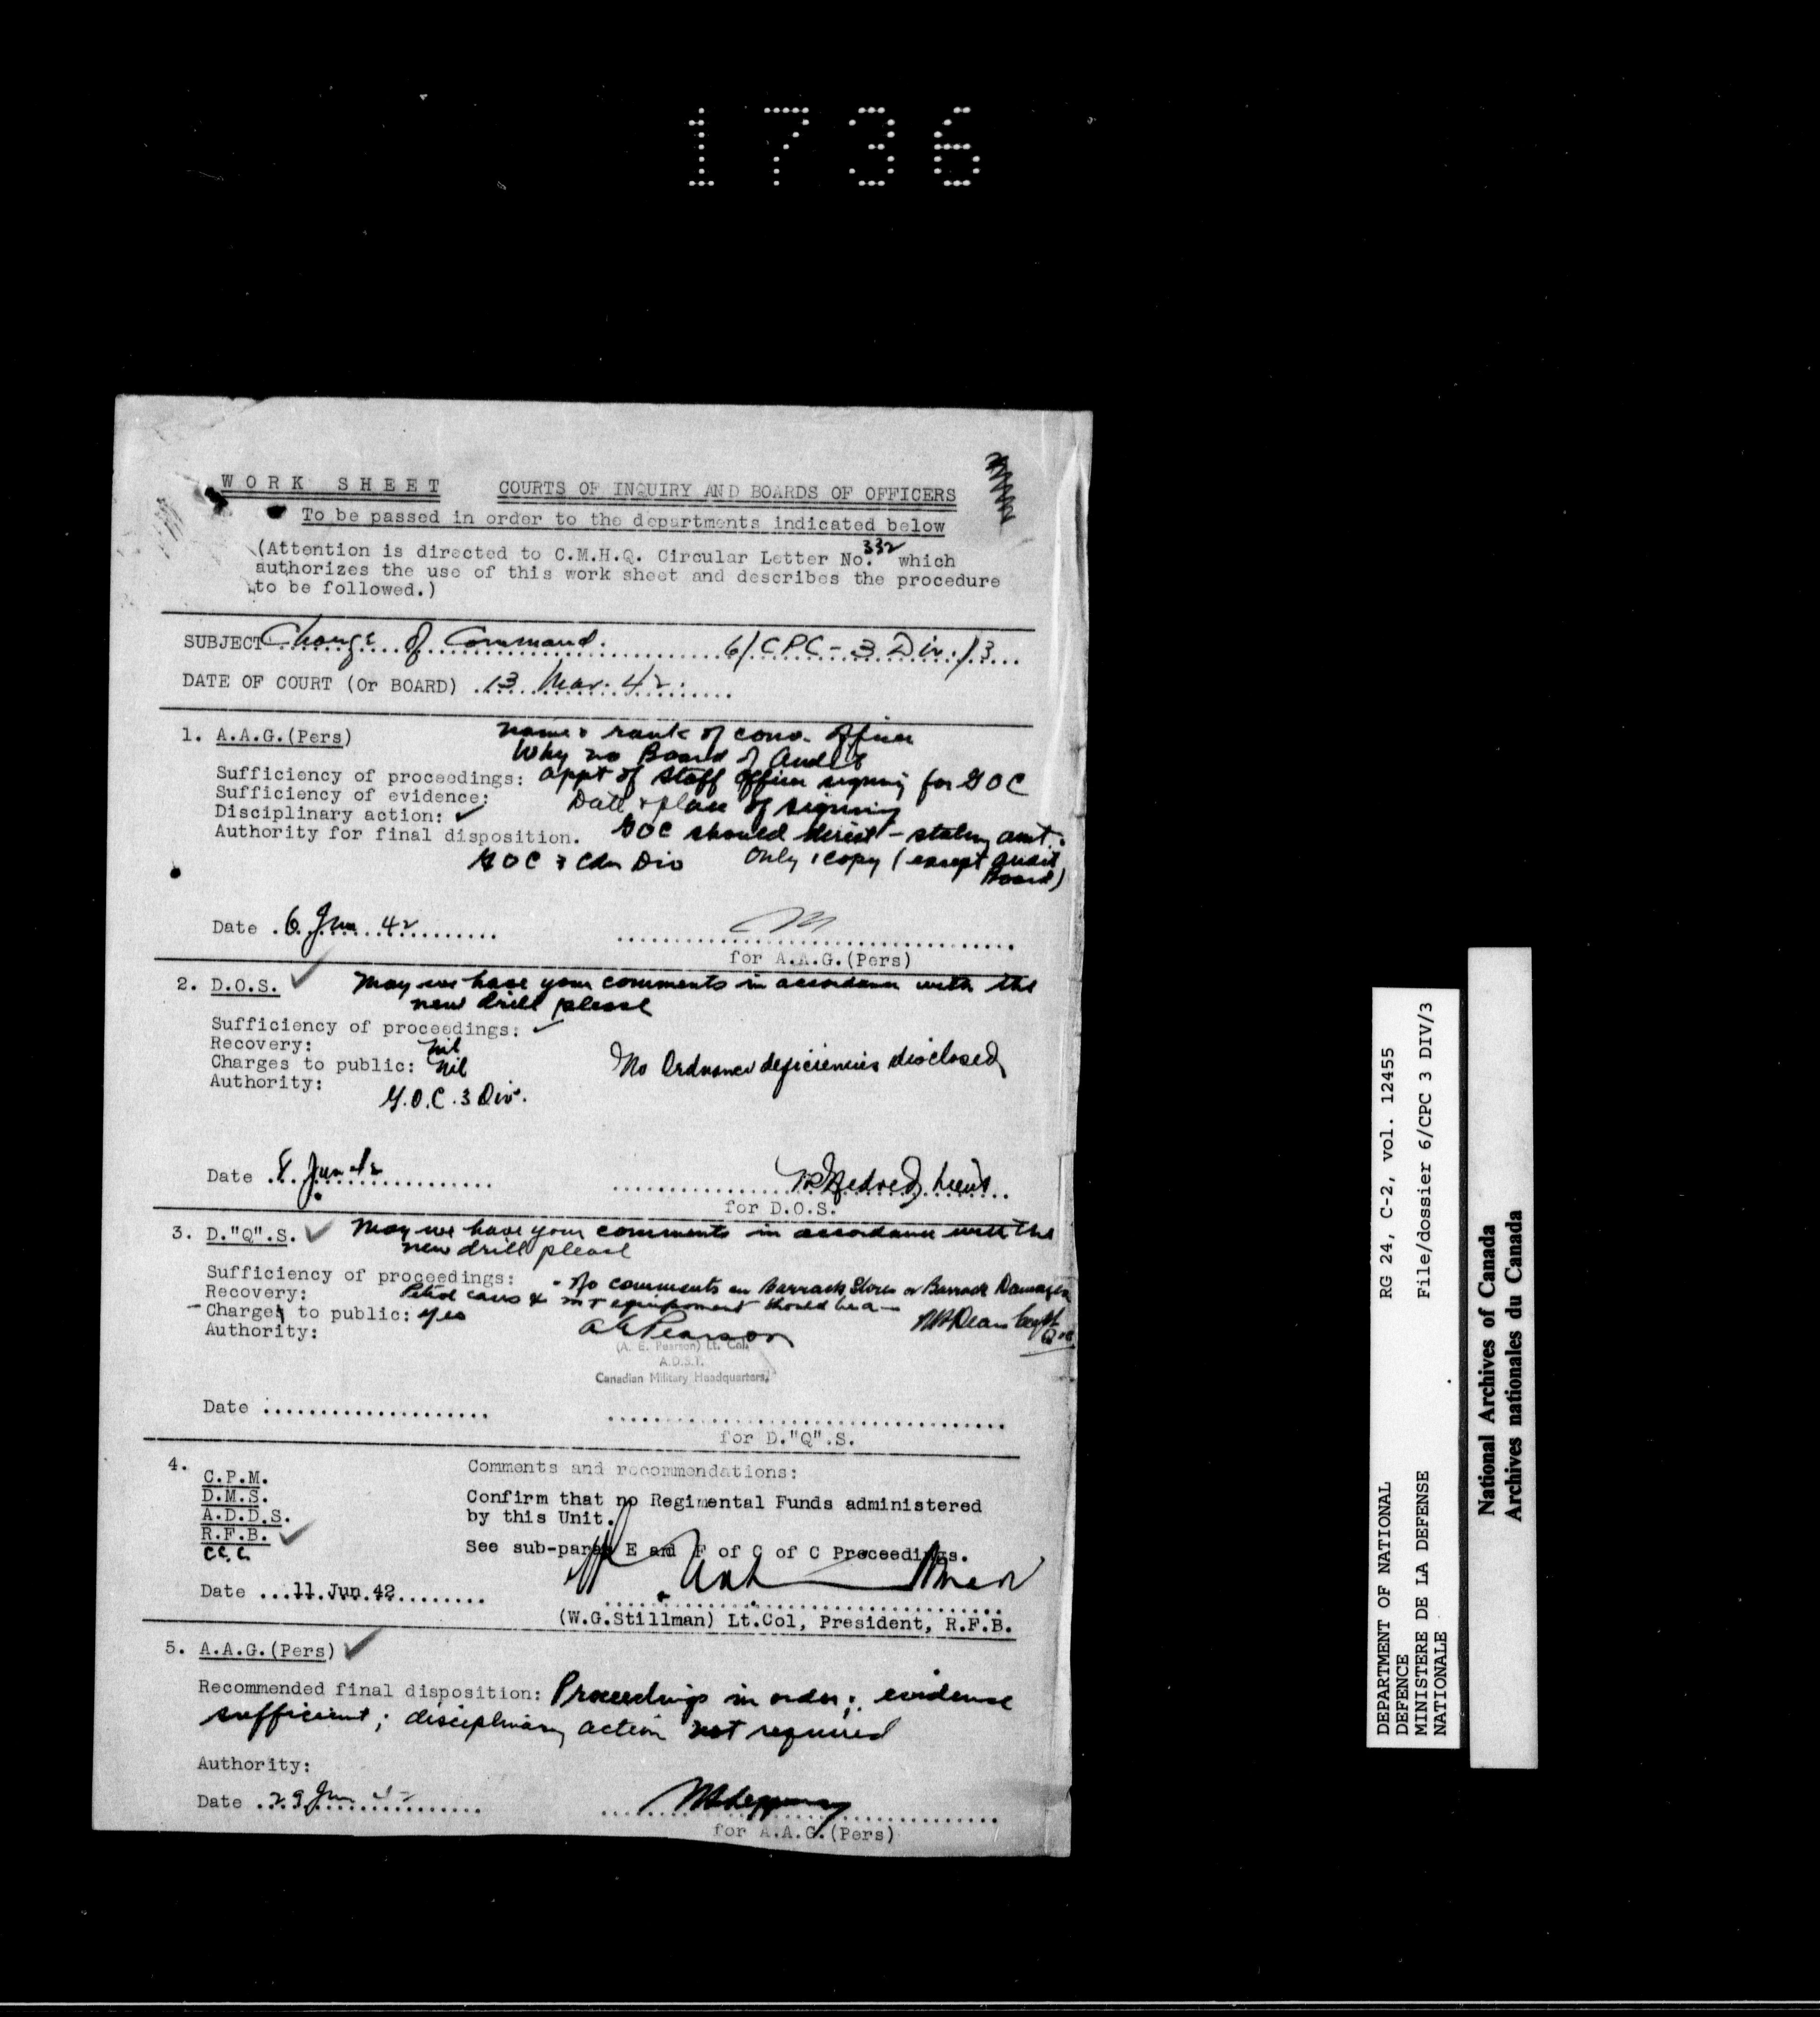 1736
WORK SHEET COURTS OF INQUIRY AND BOARDS OF OFFICERS
To be passed in order to the departments indicated below
(Attention is directed to C.M.H.Q. Circular Letter No. 332 which
authorizes the use of this work sheet and describes the procedure
to be followed.)
SUBJECT Change of Command. 6/CPC - 3 Div/3
DATE OF COURT (Or BOARD) 13 Mar. 42
1. A.A.G.(Pers) name & rank of conv. officer
Why no Board of Audit
Sufficiency of proceedings: appt of staff officer signing for GOC
Sufficiency of evidence: Date & place of signing
Disciplinary action: ✓
Authority for final disposition. GOC should direct - stating amt.
GOC 3 Cdn Div Only 1 copy (except Audit
Board)
Date 6 Jun 42
for A.A.G.(Pers)
2. D.O.S. ✓ May we have your comments in accordance with the
new drill please
Sufficiency of proceedings: ✓
Recovery: Nil
Charges to public: Nil No Ordnance deficiencies disclosed
Authority:
G.O.C. 3 Div.
Date 8 Jun 42 Lieut
for D.O.S.
3. D."Q".S. ✓ May we have your comments in accordance with the
new drill please
Sufficiency of proceedings: - No comments on Barrack Stores or Barrack Damages
Recovery: Petrol cans & MT equipment should be a
- Charges to public: yes
Authority: A E Pearson
(A. E. Pearson) Lt. Col.
A.D.S.T.
Canadian Military Headquarters.
Date
for D."Q".S.
4. Comments and recommendations:
C.P.M.
D.M.S. Confirm that no Regimental Funds administered
A.D.D.S. by this Unit.
R.F.B. ✓
C.C.C. See sub-paras E and F of C of C Proceedings.
Date 11 Jun 42
(W.G.Stillman) Lt.Col, President, R.F.B.
5. A.A.G.(Pers) ✓
Recommended final disposition: Proceedings in order; evidence
sufficient; disciplinary action not required
Authority:
Date 29 Jun 42
for A.A.G.(Pers)
DEPARTMENT OF NATIONAL RG 24, C-2, vol. 12455
DEFENCE
MINISTERE DE LA DEFENSE File/dossier 6/CPC 3 DIV/3
NATIONALE
National Archives of Canada
Archives nationales du Canada